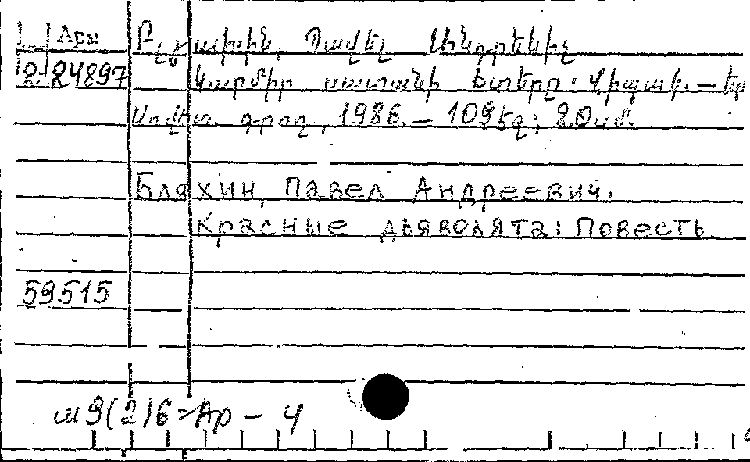 Арм Բլյախին, Պավել Անդրեևիչ
2-24897 Կարմիր սատանի ետերը: Վիպակ. — Եր
Սովետ. գրող, 1986. — 109 էջ; 20 սմ.
Бляхин, Павел Андреевич.
Красные дьяволята: Повесть
59515
ш9(2)6=Ар – 4